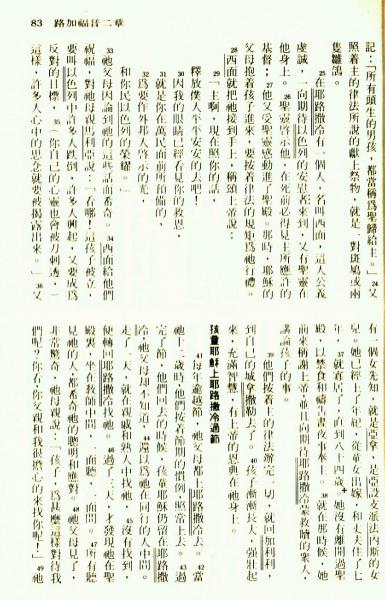 83 路加福音二章
記：「所有頭生的男孩，都當稱爲聖歸給主。」24 又
照着主的律法所說的獻上祭物，就是一對斑鳩或兩
隻雛鴿。
25 在耶路撒冷有一個人，名叫西面，這人公義
虔誠，一向期待以色列的安慰者來到，又有聖靈在
他身上。26 聖靈啓示他，在死前必得見主所應許的
基督；27 他又受聖靈感動進了聖殿。那時，耶穌的
父母抱着孩子進來，要按着律法的規矩爲祂行禮。
28 西面就把祂接到手上，稱頌上帝說：
29 「主啊，現在照你的話，
釋放僕人平平安安的去吧！
30 因我的眼睛已經看見你的救恩，
31 就是你在萬民面前所預備的，
32 爲要作外邦人啓示的光，
和你民以色列的榮耀。」
33 祂父母因論到祂的這些話而希奇。34 西面給他們
祝福，對祂母親馬利亞說：「看哪！這孩子被立，
要叫以色列中許多人跌倒，許多人興起，又要成爲
反對的目標，35（你自己的心靈也會被刀刺透，）
這樣，許多人心中的思念就要被揭露出來。」36 又
有一個女先知，就是亞拿，是亞設支派法內斯的女
兒。她已經上了年紀，從童女出嫁，和丈夫住了七
年，37 就寡居了，一直到八十四歲。她沒有離開過聖
殿，以禁食和禱告晝夜事奉上。38 就在那時候，她
前來稱謝上帝，並且向期待耶路撒冷蒙救贖的衆人，
講論孩子的事。
39 他們按着主的律法辦完一切，就回加利利，
到自己的城拿撒勒去了。40 孩子漸漸長大，強壯起
來，充滿智慧，有上帝的恩典在祂身上。
孩童耶穌上耶路撒冷過節
41 每年逾越節，祂父母都上耶路撒冷去。42 當
祂十二歲時，他們按着節期的慣例，照常上去。43 過
完了節，他們回去的時候，孩童耶穌仍留在耶路撒
冷，祂父母却不知道，44 還以爲祂在同行的人中間。
走了一天，就在親戚和熟人中找祂，45 沒有找到，
便轉回耶路撒冷找祂。46 過了三天，才發現祂在聖
殿裏，坐在教師中間，一面聽，一面問。47 所有聽
見祂的人，都希奇祂的聰明和應對。48 祂父母見了，
非常驚奇，祂母親說：「孩子，爲甚麼這樣對待我
們呢？你看，你父親和我很擔心的來找你呢！」49 祂